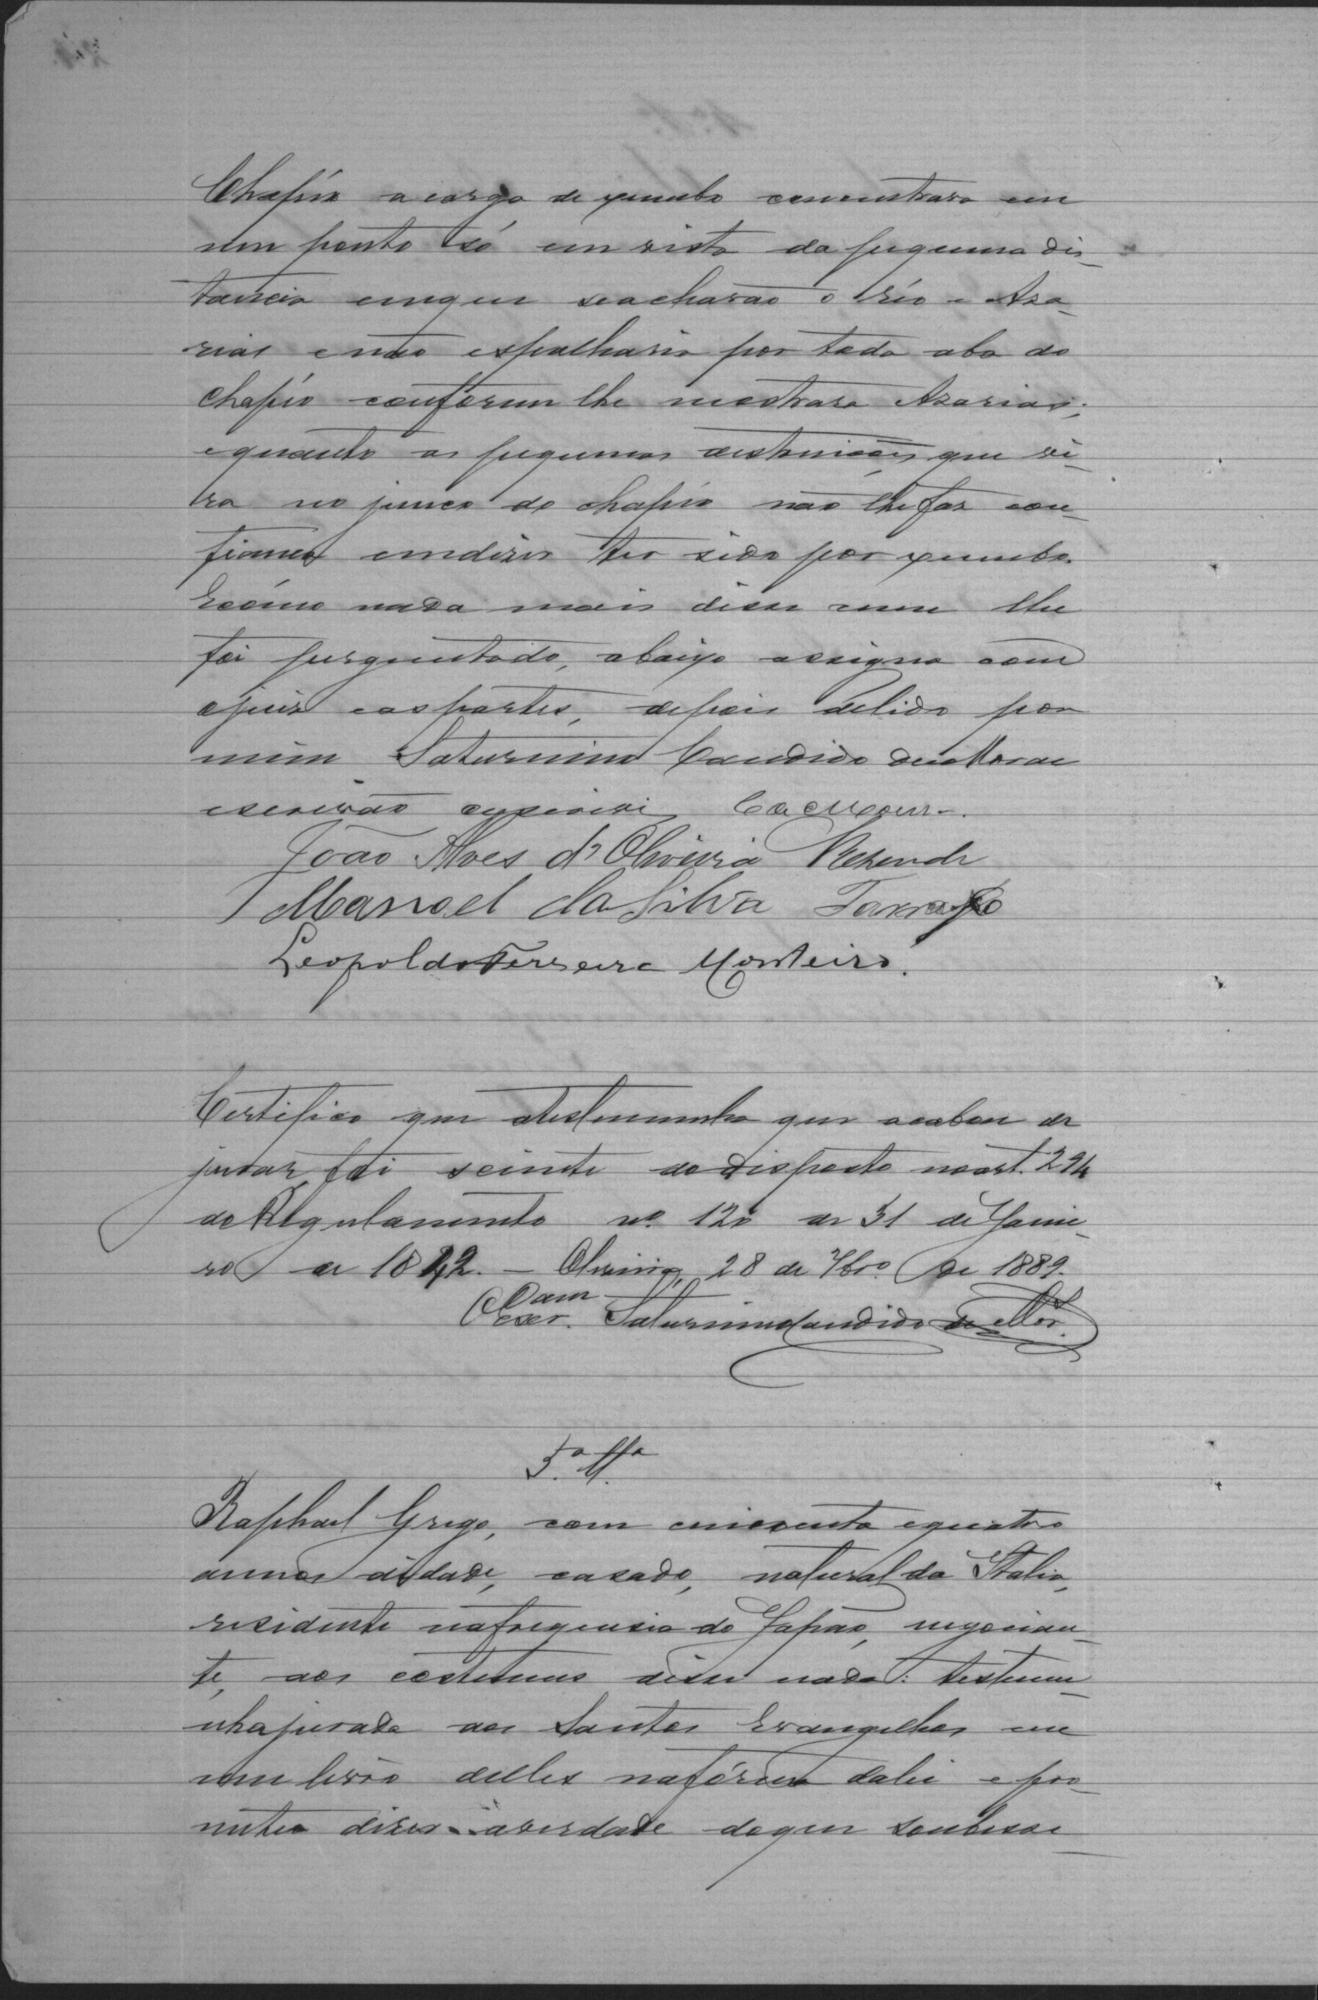 Chapéo a carga de xumbo concentrara em
um ponto só em vista da pequena dis-
tancia emque seacharão o réo e Aza-
rias enão espalharia por toda aba do
chapéo conforme lhe mostrara Azarias;
equanto as pequenas destruicões que vi-
ra no junco do chapéo não lhe faz con-
fiança emdizer ter sido por xumbo.
Ecómo nada mais disse nem lhe
foi perguntado, abaixo assigna com
ojuiz easpartes, depois delido por
mim Saturnino Candido de Moraes
escrivão escrevi
João Alves d'Oliveira Rezende
Manoel da Silva
Leopoldo Ferreira Monteiro.
Certifico que atestemunha que acabou de
jurar, foi sciente dodisposto noart. 294
do Regulamento nº 120 de 31 de Janei-
ro de 1842. — Oliveira, 28 de 7bro. de 1889.
O Escr. Saturnino Candido de Mor.
5.ª Tª
Raphael Grego, com cincoenta equatro
annos didade, casado, natural da Italia,
residente nafreguesia do Japão, negocian-
te, aos costumes disse nada: testemu-
nhajurada aos Santos Evangelhos em
um livro delles nafórma dalei e pro-
metteo dizer averdade doque soubesse